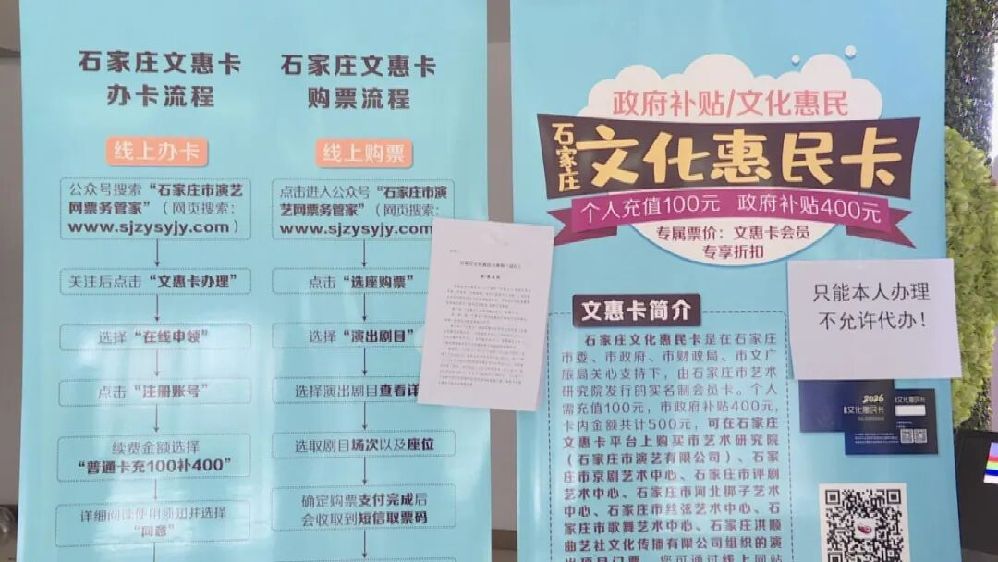 石家庄文惠卡
办卡流程
线上办卡
公众号搜索“石家庄市演艺
网票务管家”（网页搜索：
www.sjzysyjy.com）
关注后点击“文惠卡办理”
选择“在线申领”
点击“注册账号”
续费金额选择
“普通卡充100补400”
详细阅读使用须知并选择
“同意”
石家庄文惠卡
购票流程
线上购票
点击进入公众号“石家庄市演
艺网票务管家”（网页搜索：
www.sjzysyjy.com）
点击“选座购票”
选择“演出剧目”
选择演出剧目查看详
选取剧目场次以及座位
确定购票支付完成后
会收取到短信取票码
政府补贴/文化惠民
石家庄
文化惠民卡
个人充值100元 政府补贴400元
专属票价：文惠卡会员
专享折扣
只能本人办理
不允许代办！
文惠卡简介
石家庄文化惠民卡是在石家庄
市委、市政府、市财政局、市文广
旅局关心支持下，由石家庄市艺术
研究院发行的实名制会员卡。个人
需充值100元，市政府补贴400元，
卡内金额共计500元，可在石家庄
文惠卡平台上购买市艺术研究院
（石家庄市演艺有限公司）、石家
庄市京剧艺术中心、石家庄市评剧
艺术中心、石家庄市河北梆子艺术
中心、石家庄市丝弦艺术中心、石
家庄市歌舞艺术中心、石家庄洪顺
曲艺社文化传播有限公司组织的演
出项目门票。您可通过线上网站
2026
文化惠民卡
文化惠民卡